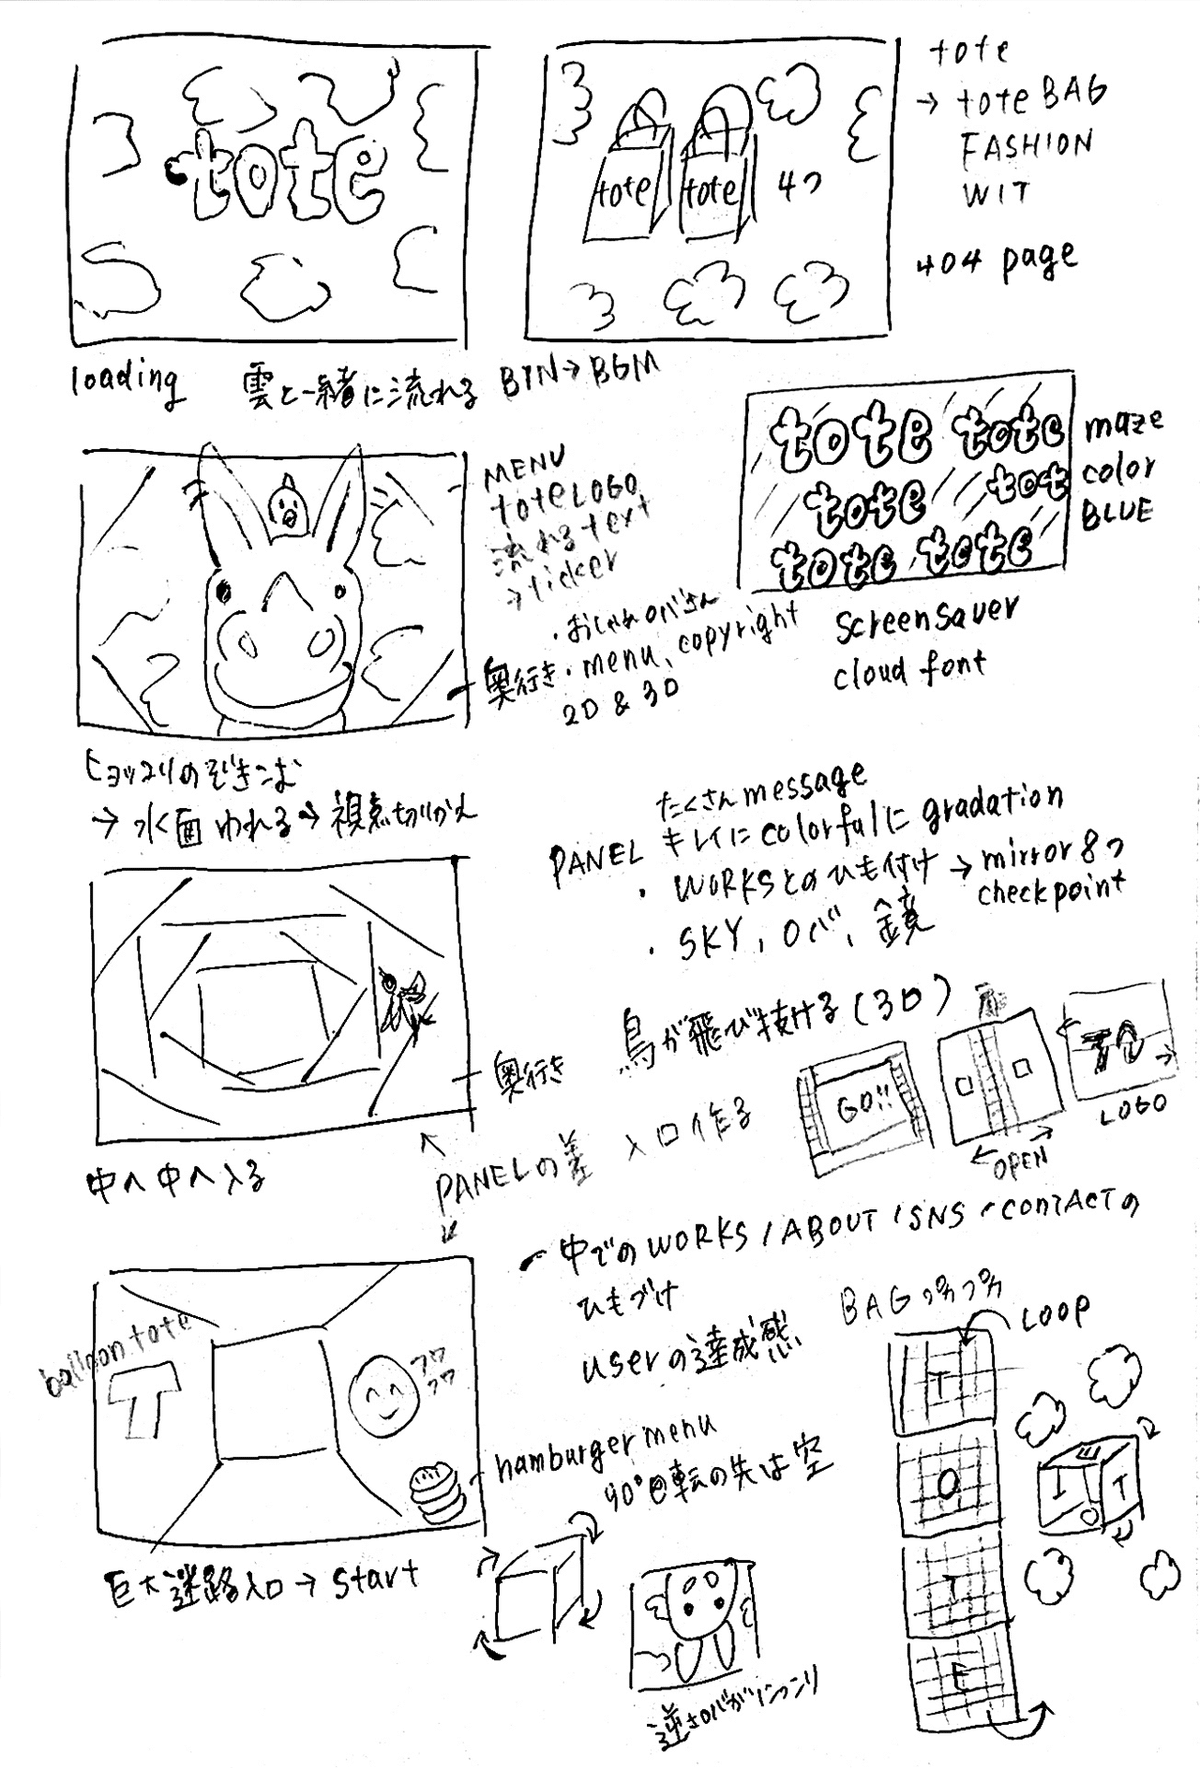 tote
tote
→ toteBAG
FASHION
WIT
tote tote 4つ
404 page
loading 雲と一緒に流れる BTN→BGM
tote tote
tote tot
tote tote
maze
color
BLUE
MENU
toteLOGO
流れるtext
→ticker
・おしゃれロバさん
奥行き・menu、copyright
2D & 3D
screensaver
cloud font
ヒョッコリのぞきこむ
→水面ゆれる→視点切りかえ
たくさんmessage
PANEL キレイにcolorfulにgradation
・WORKSとのひも付け→mirror 8つ
checkpoint
・SKY、ロバ、鏡
鳥が飛び抜ける(3D)
奥行き
入口作る
GO!!
OPEN
LOGO
中へ中へ入る
PANELの差
中でのWORKS/ABOUT/SNS/CONTACTの
ひもづけ
userの達成感
BAGつなつな
LOOP
balloon tote
T
フワ
フワ
hamburger menu
90°回転の先は空
T
O
T
E
巨大迷路入口→start
逆さロバがにっこり